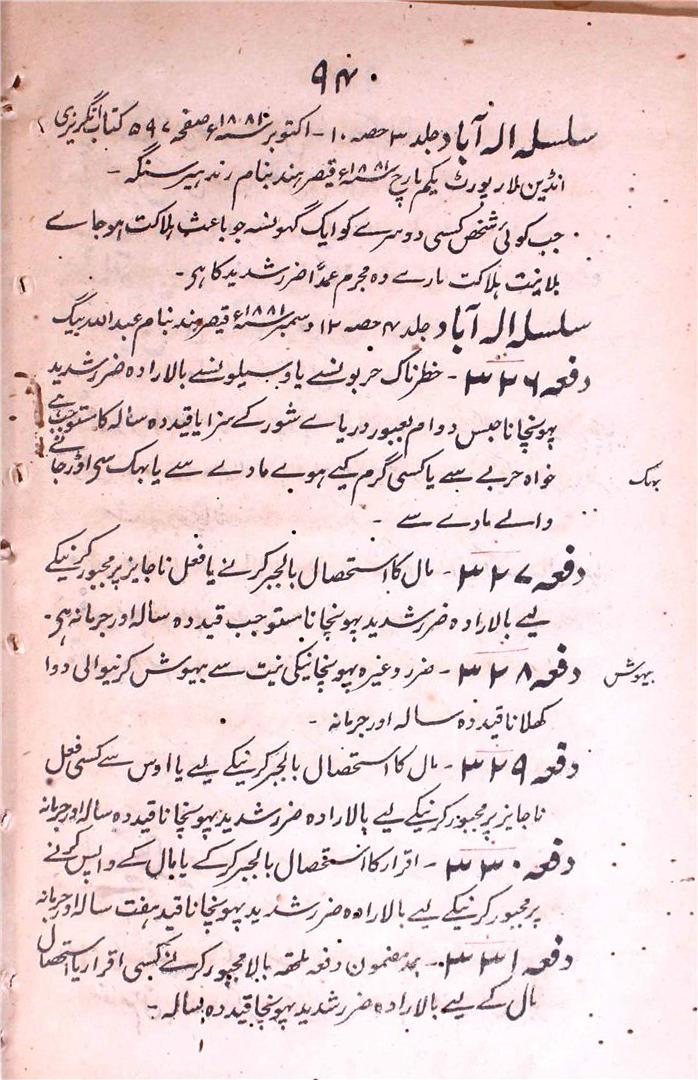 ۹۴۰
سلسلہ الہ آباد جلد ۳ حصہ ۱۰ - اکتوبر سنہ ۱۸۸۱ء صفحہ ۵۹۷ کتاب انگریزی
انڈین لا رپورٹ یکم مارچ سنہ ۱۸۸۱ء قیصر ہند بنام رندہیر سنگہ -
جب کوئی شخص کسی دوسرے کو ایک گہونسہ جو باعث ہلاکت ہو جاے
بلا نیت ہلاکت مارے وہ مجرم عمداً ضرر شدید کا ہی -
سلسلہ الہ آباد جلد ۴ حصہ ۱۲ دسمبر سنہ ۱۸۸۱ء قیصر ہند بنام عبداللہ بیگ
دفعہ ۳۲۶ - خطرناک حربونسے یا وسیلونسے بالارادہ ضرر شدید
پہونچانا حبس دوام بعبور دریاے شور کے سزا یا قید دہ سالہ کا مستوجب ہے
خواہ حربے سے یا کسی گرم کیے ہوے مادے سے یا بہک سی اوڑ جانے
والے مادے سے -
بہک
دفعہ ۳۲۷ - مال کا استحصال بالجبر کرنے یا فعل ناجایز پر مجبور کرنیکے
لیے بالارادہ ضرر شدید پہونچانا مستوجب قید دہ سالہ اور جرمانہ ہی -
دفعہ ۳۲۸ - ضرر وغیرہ پہونچانیکی نیت سے بیہوش کرنیوالی دوا
بیہوش
کہلانا قید دہ سالہ اور جرمانہ -
دفعہ ۳۲۹ - مال کا استحصال بالجبر کرنیکے لیے یا اوس سے کسی فعل
ناجایز پر مجبور کرنیکے لیے بالارادہ ضرر شدید پہونچانا قید دہ سالہ اور جرمانہ
دفعہ ۳۳۰ - اقرار کا استحصال بالجبر کرکے یا مال کے واپس کرنے
پر مجبور کرنیکے لیے بالارادہ ضرر شدید پہونچانا قید ہفت سالہ اور جرمانہ
دفعہ ۳۳۱ - مضمون دفعہ ملحقہ بالا مجبور کرنے کسی اقرار یا استحصال
مال کے لیے بالارادہ ضرر شدید پہونچانا قید دہ سالہ -
۱